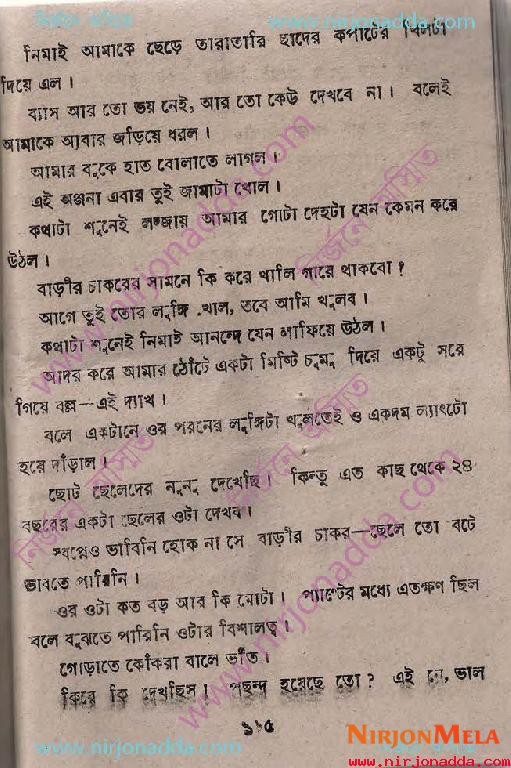 নির্জনে অস্মিত www.nirjonadda.com
নিমাই আমাকে ছেড়ে তারাতারি ছাদের কপাটের খিলটা
দিয়ে এল।
ব্যাস আর তো ভয় নেই, আর তো কেউ দেখবে না। বলেই
আমাকে আবার জড়িয়ে ধরল।
আমার বুকে হাত বোলাতে লাগল।
এই অঞ্জনা এবার তুই জামাটা খোল।
কথাটা শুনেই লজ্জায় আমার গোটা দেহটা যেন কেমন করে
উঠল।
বাড়ীর চাকরের সামনে কি করে খালি গায়ে থাকবো?
আগে তুই তোর লুঙ্গি খোল, তবে আমি খুলব।
কথাটা শুনেই নিমাই আনন্দে যেন লাফিয়ে উঠল।
আদর করে আমার ঠোঁটে একটা মিষ্টি চুমু দিয়ে একটু সরে
গিয়ে বল্ল—এই দ্যাখ।
বলে একটানে ওর পরনের লুঙ্গিটা খুলতেই ও একদম ল্যাংটো
হয়ে দাঁড়াল।
ছোট ছেলেদের নুনু দেখেছি। কিন্তু এত কাছ থেকে ২৪
বছরের একটা ছেলের ওটা দেখব।
স্বপ্নেও ভাবিনি হোক না সে বাড়ীর চাকর—ছেলে তো বটে
ভাবতে পারিনি।
ওর ওটা কত বড় আর কি মোটা। প্যান্টের মধ্যে এতক্ষণ ছিল
বলে বুঝতে পারিনি ওটার বিশালত্ব।
গোড়াতে কোঁকরা বালে ভর্তি।
কিরে কি দেখছিস। পছন্দ হয়েছে তো? এই নে, ভাল
১১৫
www.nirjonadda.com
NIRJONMELA
www.nirjonadda.com